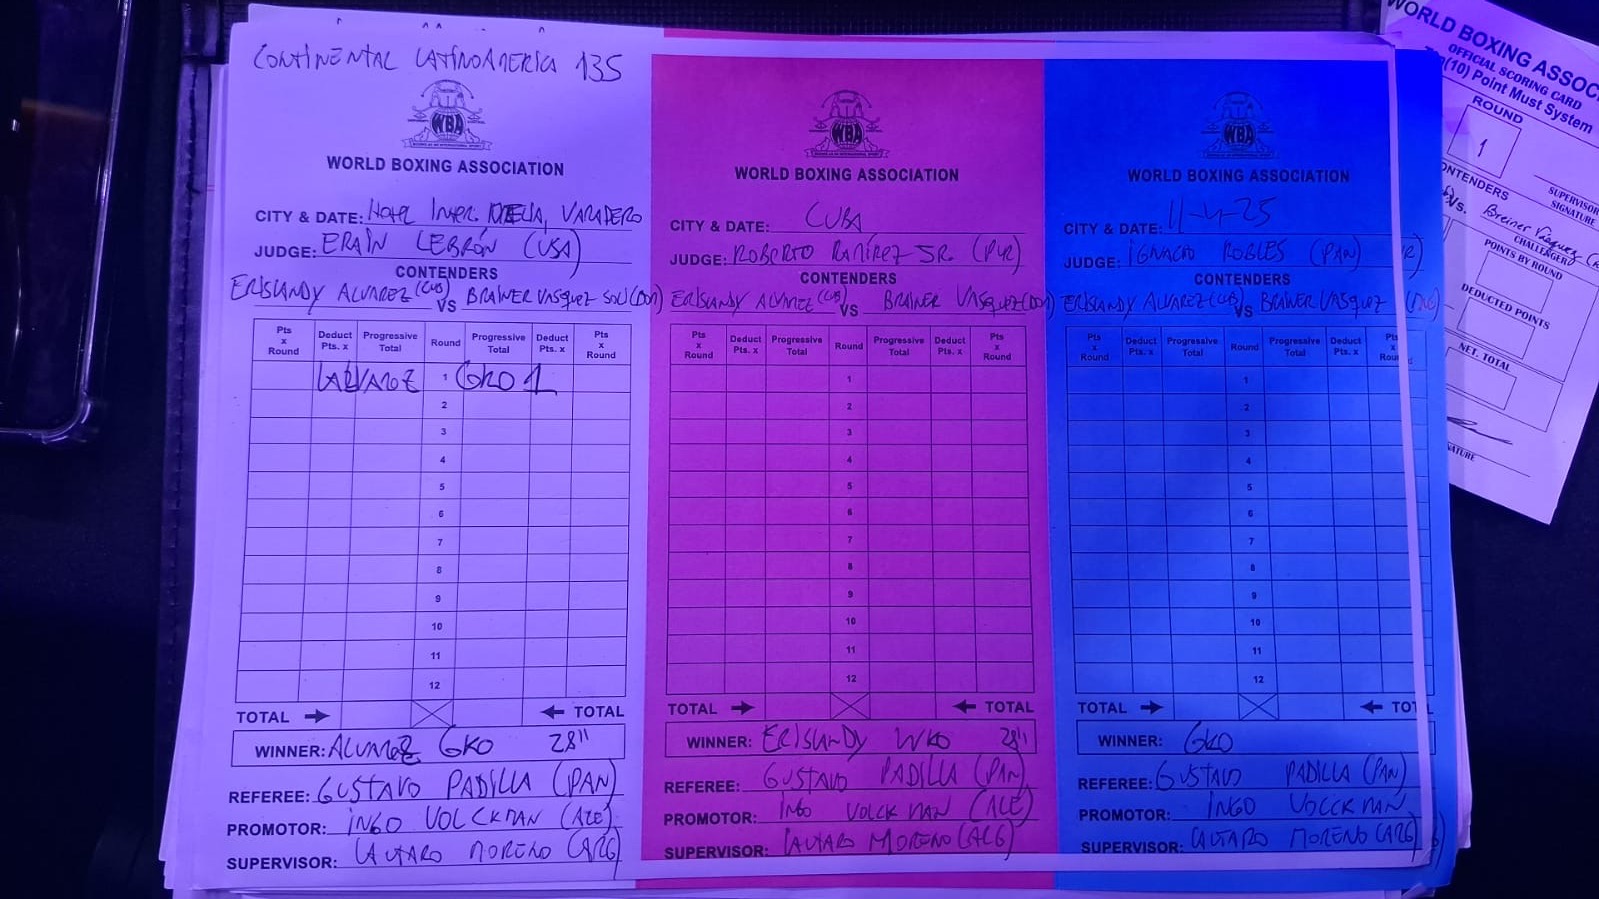 CONTINENTAL LATINOAMERICA 135
WBA
WORLD BOXING ASSOCIATION
CITY & DATE: HOTEL INTER. MELIA, VARADERO
JUDGE: ERAIN LEBRÓN (USA)
CONTENDERS
ERISLANDY ALVAREZ (CUB) VS BRAINER VASQUEZ SOLI (DOM)
Pts x Round
Deduct Pts. x
Progressive Total
Round
Progressive Total
Deduct Pts. x
Pts x Round
ALVAREZ 1 GKO 1
2
3
4
5
6
7
8
9
10
11
12
TOTAL
TOTAL
WINNER: ALVAREZ GKO 28"
REFEREE: GUSTAVO PADILLA (PAN)
PROMOTOR: INGO VOLCKMAN (ALE)
SUPERVISOR: LAUTARO MORENO (ARG)
WBA
WORLD BOXING ASSOCIATION
CITY & DATE: CUBA
JUDGE: ROBERTO RAMÍREZ SR. (PUR)
CONTENDERS
ERISLANDY ALVAREZ (CUB) VS BRAINER VASQUEZ (DOM)
Pts x Round
Deduct Pts. x
Progressive Total
Round
Progressive Total
Deduct Pts. x
Pts x Round
1
2
3
4
5
6
7
8
9
10
11
12
TOTAL
TOTAL
WINNER: ERISLANDY WKO 28"
REFEREE: GUSTAVO PADILLA (PAN)
PROMOTOR: INGO VOLCKMAN (ALE)
SUPERVISOR: LAUTARO MORENO (ARG)
WBA
WORLD BOXING ASSOCIATION
CITY & DATE: 11-4-25
JUDGE: IGNACIO ROBLES (PAN)
CONTENDERS
ERISLANDY ALVAREZ (CUB) VS BRAINER VASQUEZ
Pts x Round
Deduct Pts. x
Progressive Total
Round
Progressive Total
Deduct Pts. x
Pts x Roun
1
2
3
4
5
6
7
8
9
10
11
12
TOTAL
TOT
WINNER: GKO
REFEREE: GUSTAVO PADILLA (PAN)
PROMOTOR: INGO VOLCKMAN
SUPERVISOR: LAUTARO MORENO (ARG)
WORLD BOXING ASSOC
OFFICIAL SCORING CARD
(10) Point Must System
ROUND
1
ONTENDERS
SUPERVISOR
SIGNATURE
VS. Breiner Vasquez
CHALLENGER
POINTS BY ROUND
DEDUCTED POINTS
NET. TOTAL
NATURE